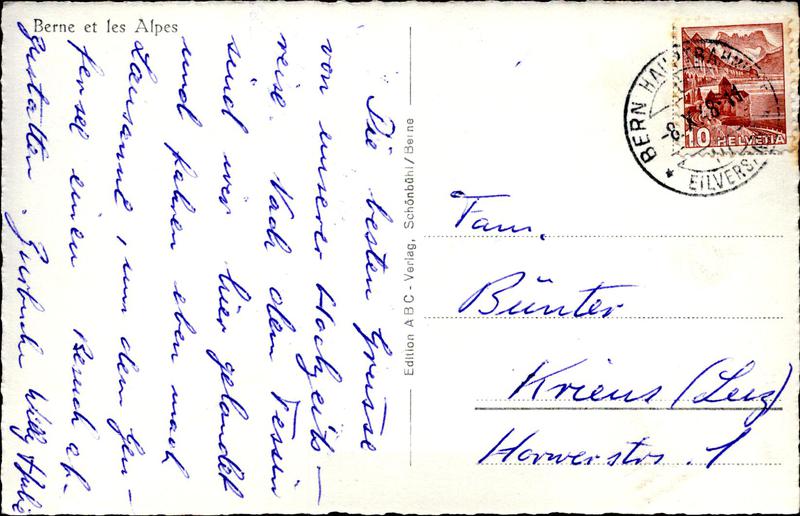 Berne et les Alpes
Die besten Grüsse
von unserer Hochzeits-
reise. Nach dem Tessin
sind wir hier gelandet
und fahren eben nach
Lausanne, um dem Gen-
fersee einen Besuch ab-
zustatten. Willy
Edition ABC - Verlag, Schönbühl/Berne
BERN HAUPTBAHNHOF
-8.X.48-14
EILVERS.
10 HELVETIA
Fam.
Bünter
Kriens (Luz)
Horwerstrs. 1